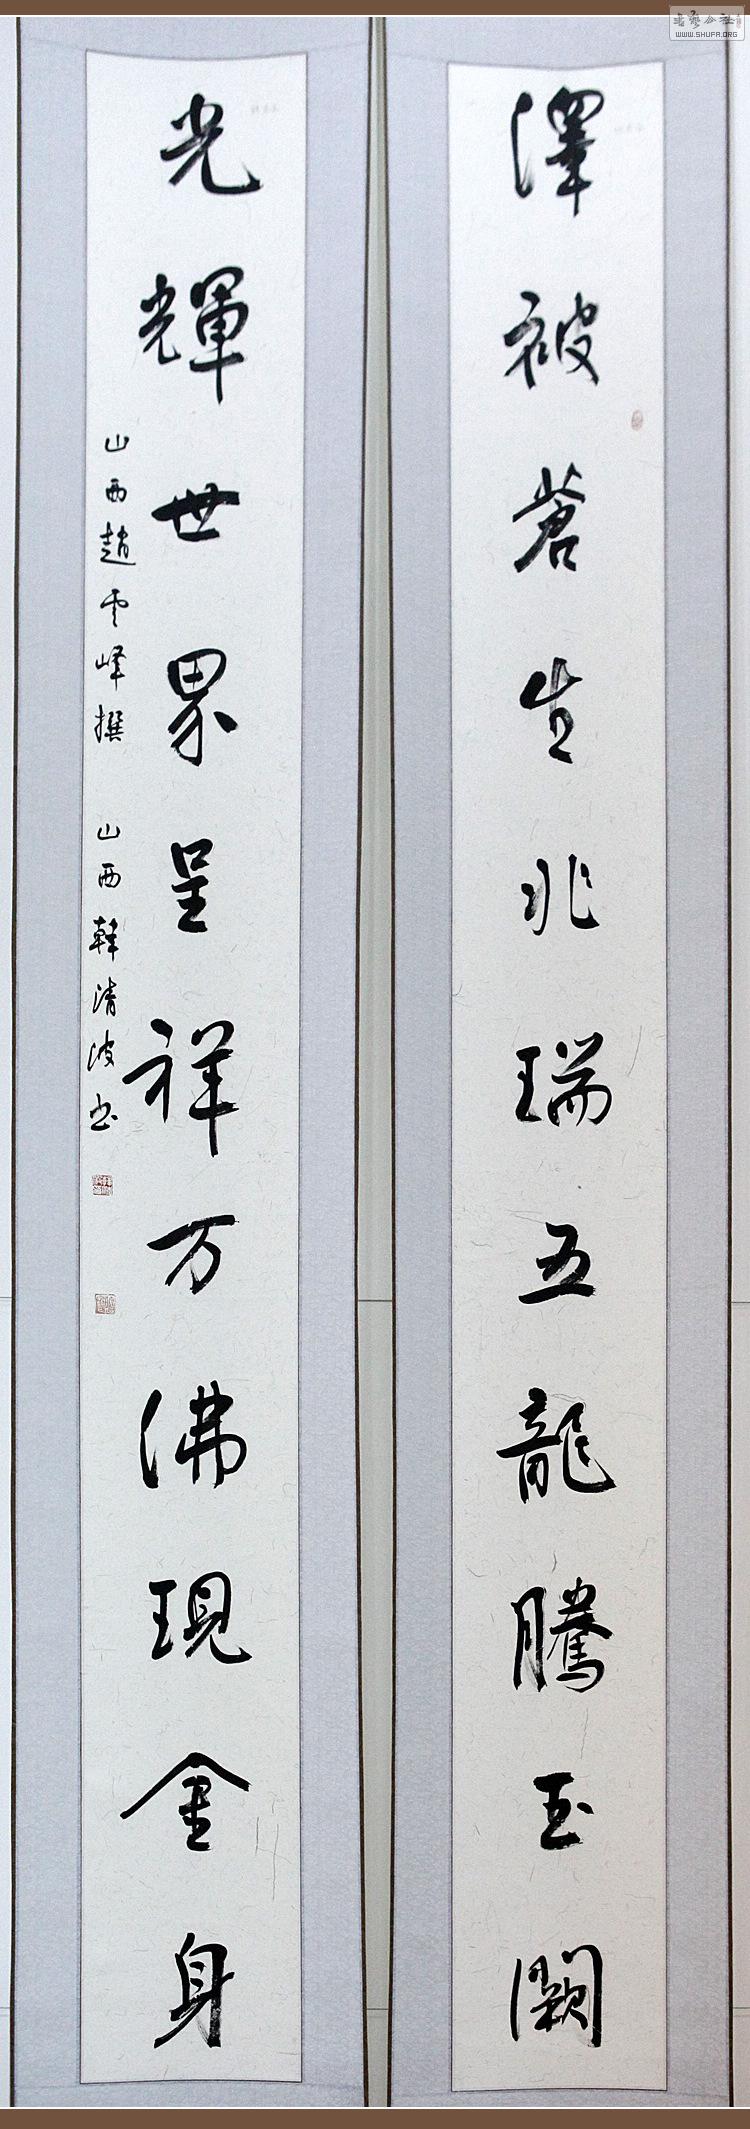 澤被蒼生兆瑞五龍騰玉闕
光輝世界呈祥万佛現金身
山西趙雲峰撰 山西韓清波书
书艺公社
WWW.SHUFA.ORG